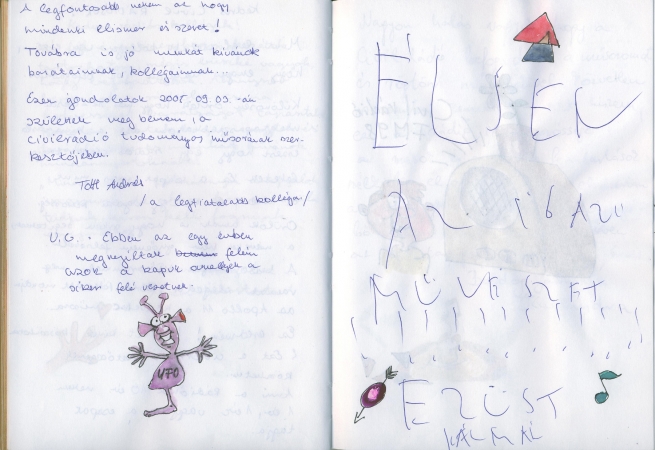 A legfontosabb nekem az hogy
mindenki elismer és szeret!
Továbbra is jó munkát kívánok
barátaimnak, kollégáimnak.
Ezen gondolatok 2005. 09. 09.-án
születnek meg bennem, a
civilrádió tudományos műsorának szer-
kesztőjében.
Tóth András
/a legfiatalabb kolléga/
U.G.: Ebben az egy évben
megnyíltak felém
azok a kapuk amellyek a
siker felé vezetnek.
UFO
ÉLJEN
AZ IGAZI
MŰVÉSZET
EZÜST
KÁLMÁN